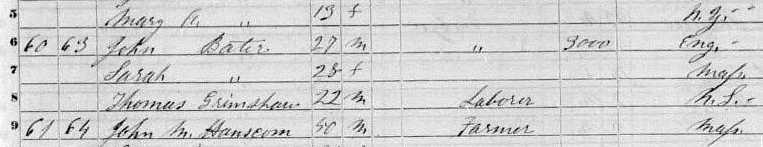 5 Mary A. " 13 f N.Y. "
6 60 63 John Bater 27 m " 3000 Eng. "
7 Sarah " 28 f Mass.
8 Thomas Grimshaw 22 m Laborer
9 61 64 John M. Hanscom 50 m Farmer Mass.